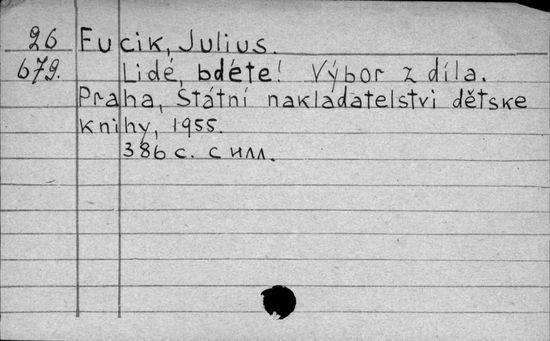 26 Fucik, Julius.
679. Lidé, bdéte! Výbor z díla.
Praha, Státní nakladatelstvi dětske
knihy, 1955.
386 с. с илл.